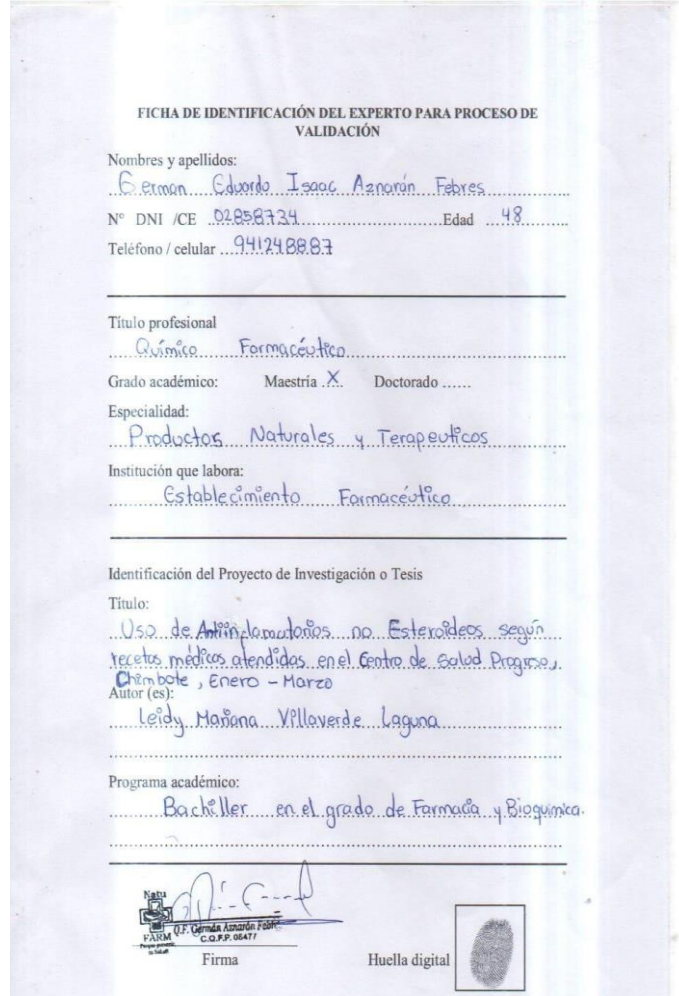 FICHA DE IDENTIFICACIÓN DEL EXPERTO PARA PROCESO DE
VALIDACIÓN
Nombres y apellidos:
German Eduardo Isaac Aznarán Febres
N° DNI /CE 02858734 Edad 48
Teléfono / celular 941248887
Título profesional
Químico Farmacéutico
Grado académico: Maestría X Doctorado ......
Especialidad:
Productos Naturales y Terapeuticos
Institución que labora:
Establecimiento Farmacéutico
Identificación del Proyecto de Investigación o Tesis
Título:
Uso de Antiinflamatorios no Esteroideos según
recetas médicas atendidas en el Centro de Salud Progreso,
Chimbote, Enero - Marzo
Autor (es):
Leidy Mariana Villaverde Laguna
Programa académico:
Bachiller en el grado de Farmacia y Bioquimica.
Natu
FARM
Q.F. Germán Aznarán Febres
C.Q.F.P. 06477
Firma Huella digital